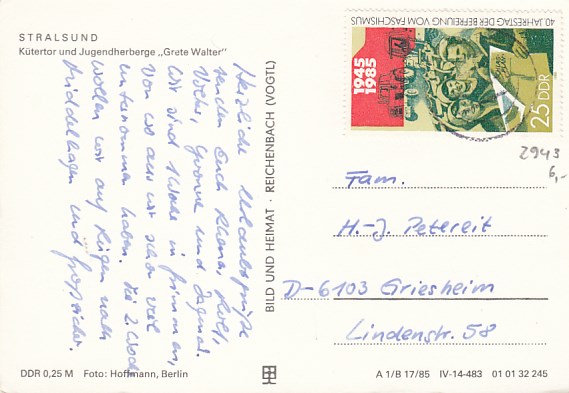 STRALSUND
Kütertor und Jugendherberge „Grete Walter"
Herzliche Urlaubsgrüße
senden Euch Klaus, Rolf,
Yvonne und Dagmar.
Wir sind 1 Woche in Grimmen,
von wo aus wir schon viel
unternommen haben. Die 2. Woche
wollen wir auf Rügen nach
Middelhagen und Großzicker.
DDR 0,25 M Foto: Hoffmann, Berlin
BILD UND HEIMAT · REICHENBACH (VOGTL)
40. JAHRESTAG DER BEFREIUNG VOM FASCHISMUS
1945
1985
25 DDR
2943
6,-
Fam.
H.-J. Petereit
D-6103 Griesheim
Lindenstr. 58
A 1/B 17/85 IV-14-483 01 01 32 245